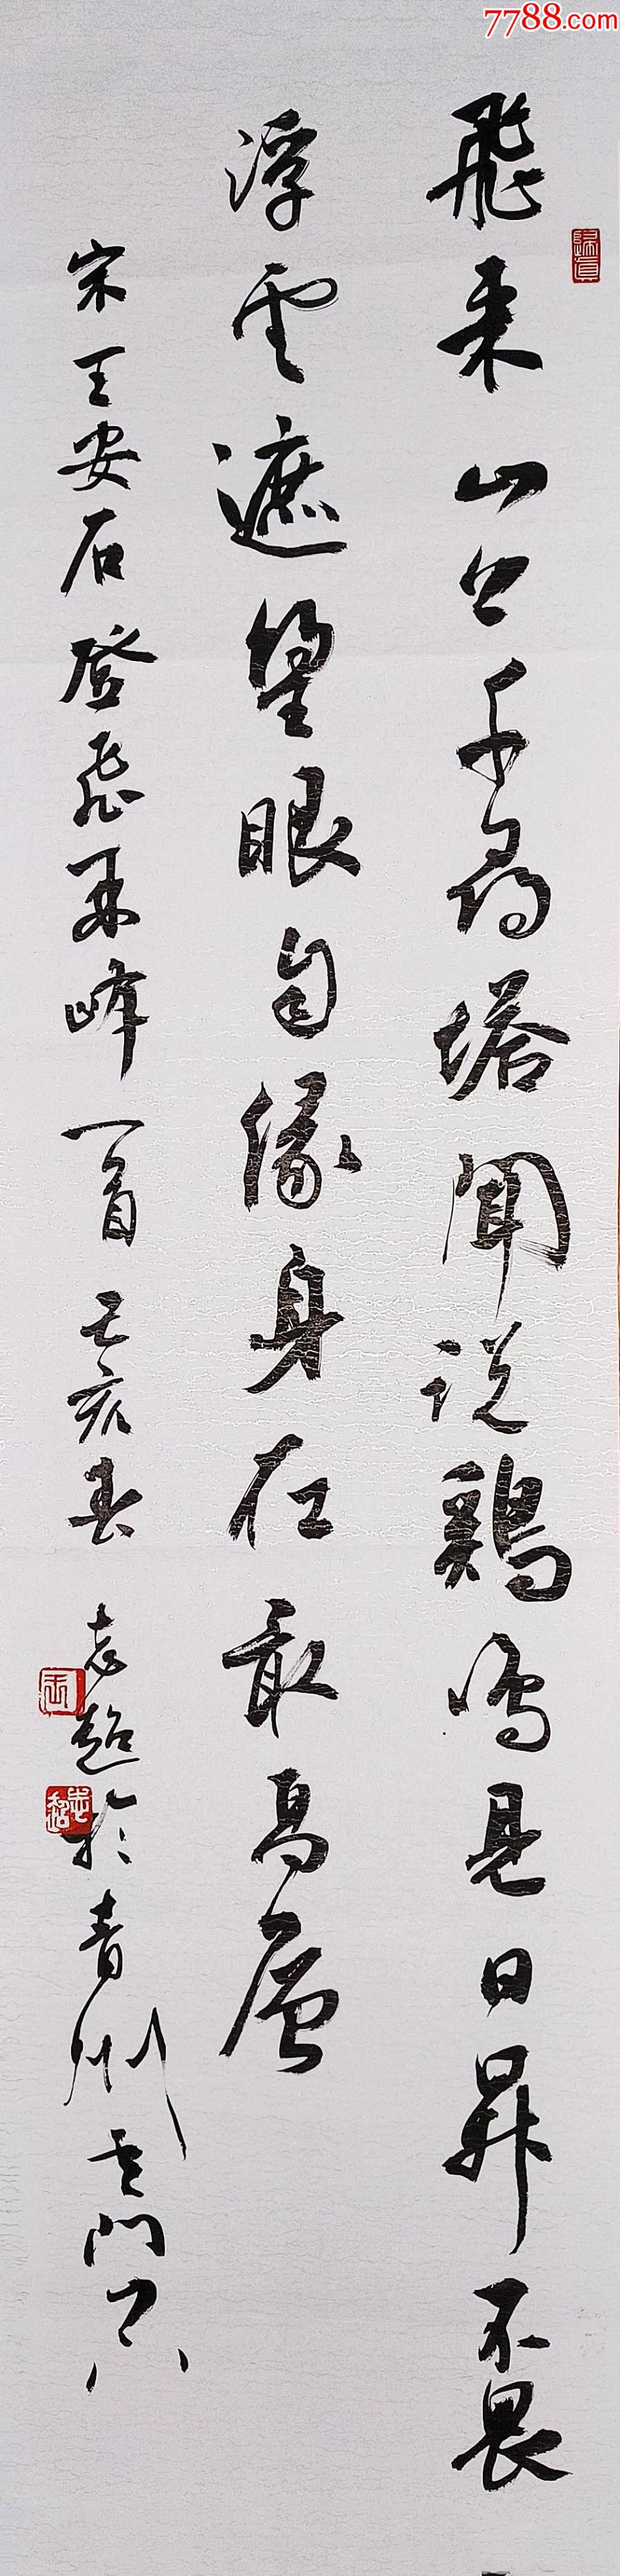 7788.com
歸真
飛来山上千尋塔聞説鷄鳴見日昇不畏
浮雲遮望眼自緣身在最高層
宋王安石登飛来峰一首己亥春志超於青州雲門
志超